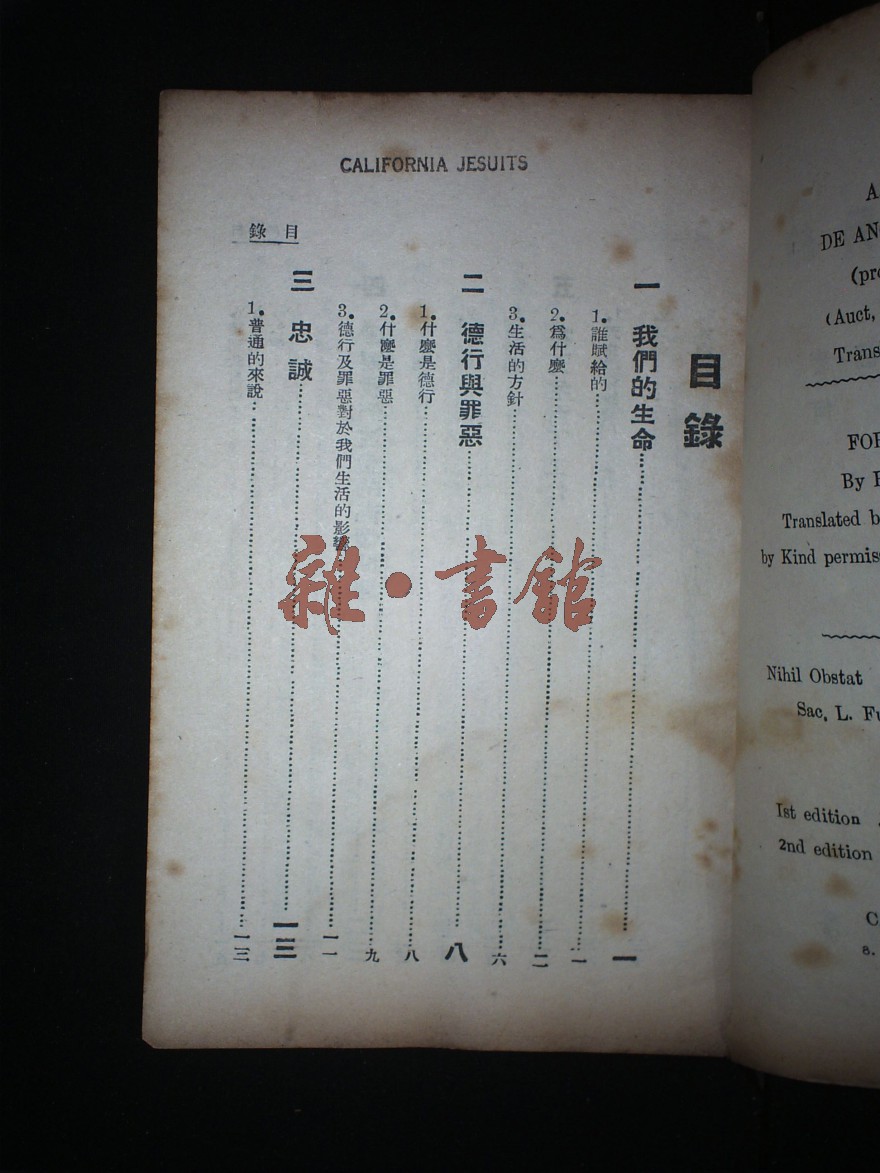 CALIFORNIA JESUITS
錄目
目錄
一 我們的生命……一
1.誰賦給的……一
2.爲什麼……二
3.生活的方針……六
二 德行與罪惡……八
1.什麼是德行……八
2.什麼是罪惡……九
3.德行及罪惡對於我們生活的影響……一一
三 忠誠……一三
1.普通的來說……一三
雜·書館
A
DE AN
(pro
(Auct,
Trans
FOR
By
Translated b
by Kind permiss
Nihil Obstat
Sac, L. Fu
Ist edition
2nd edition
C
8.